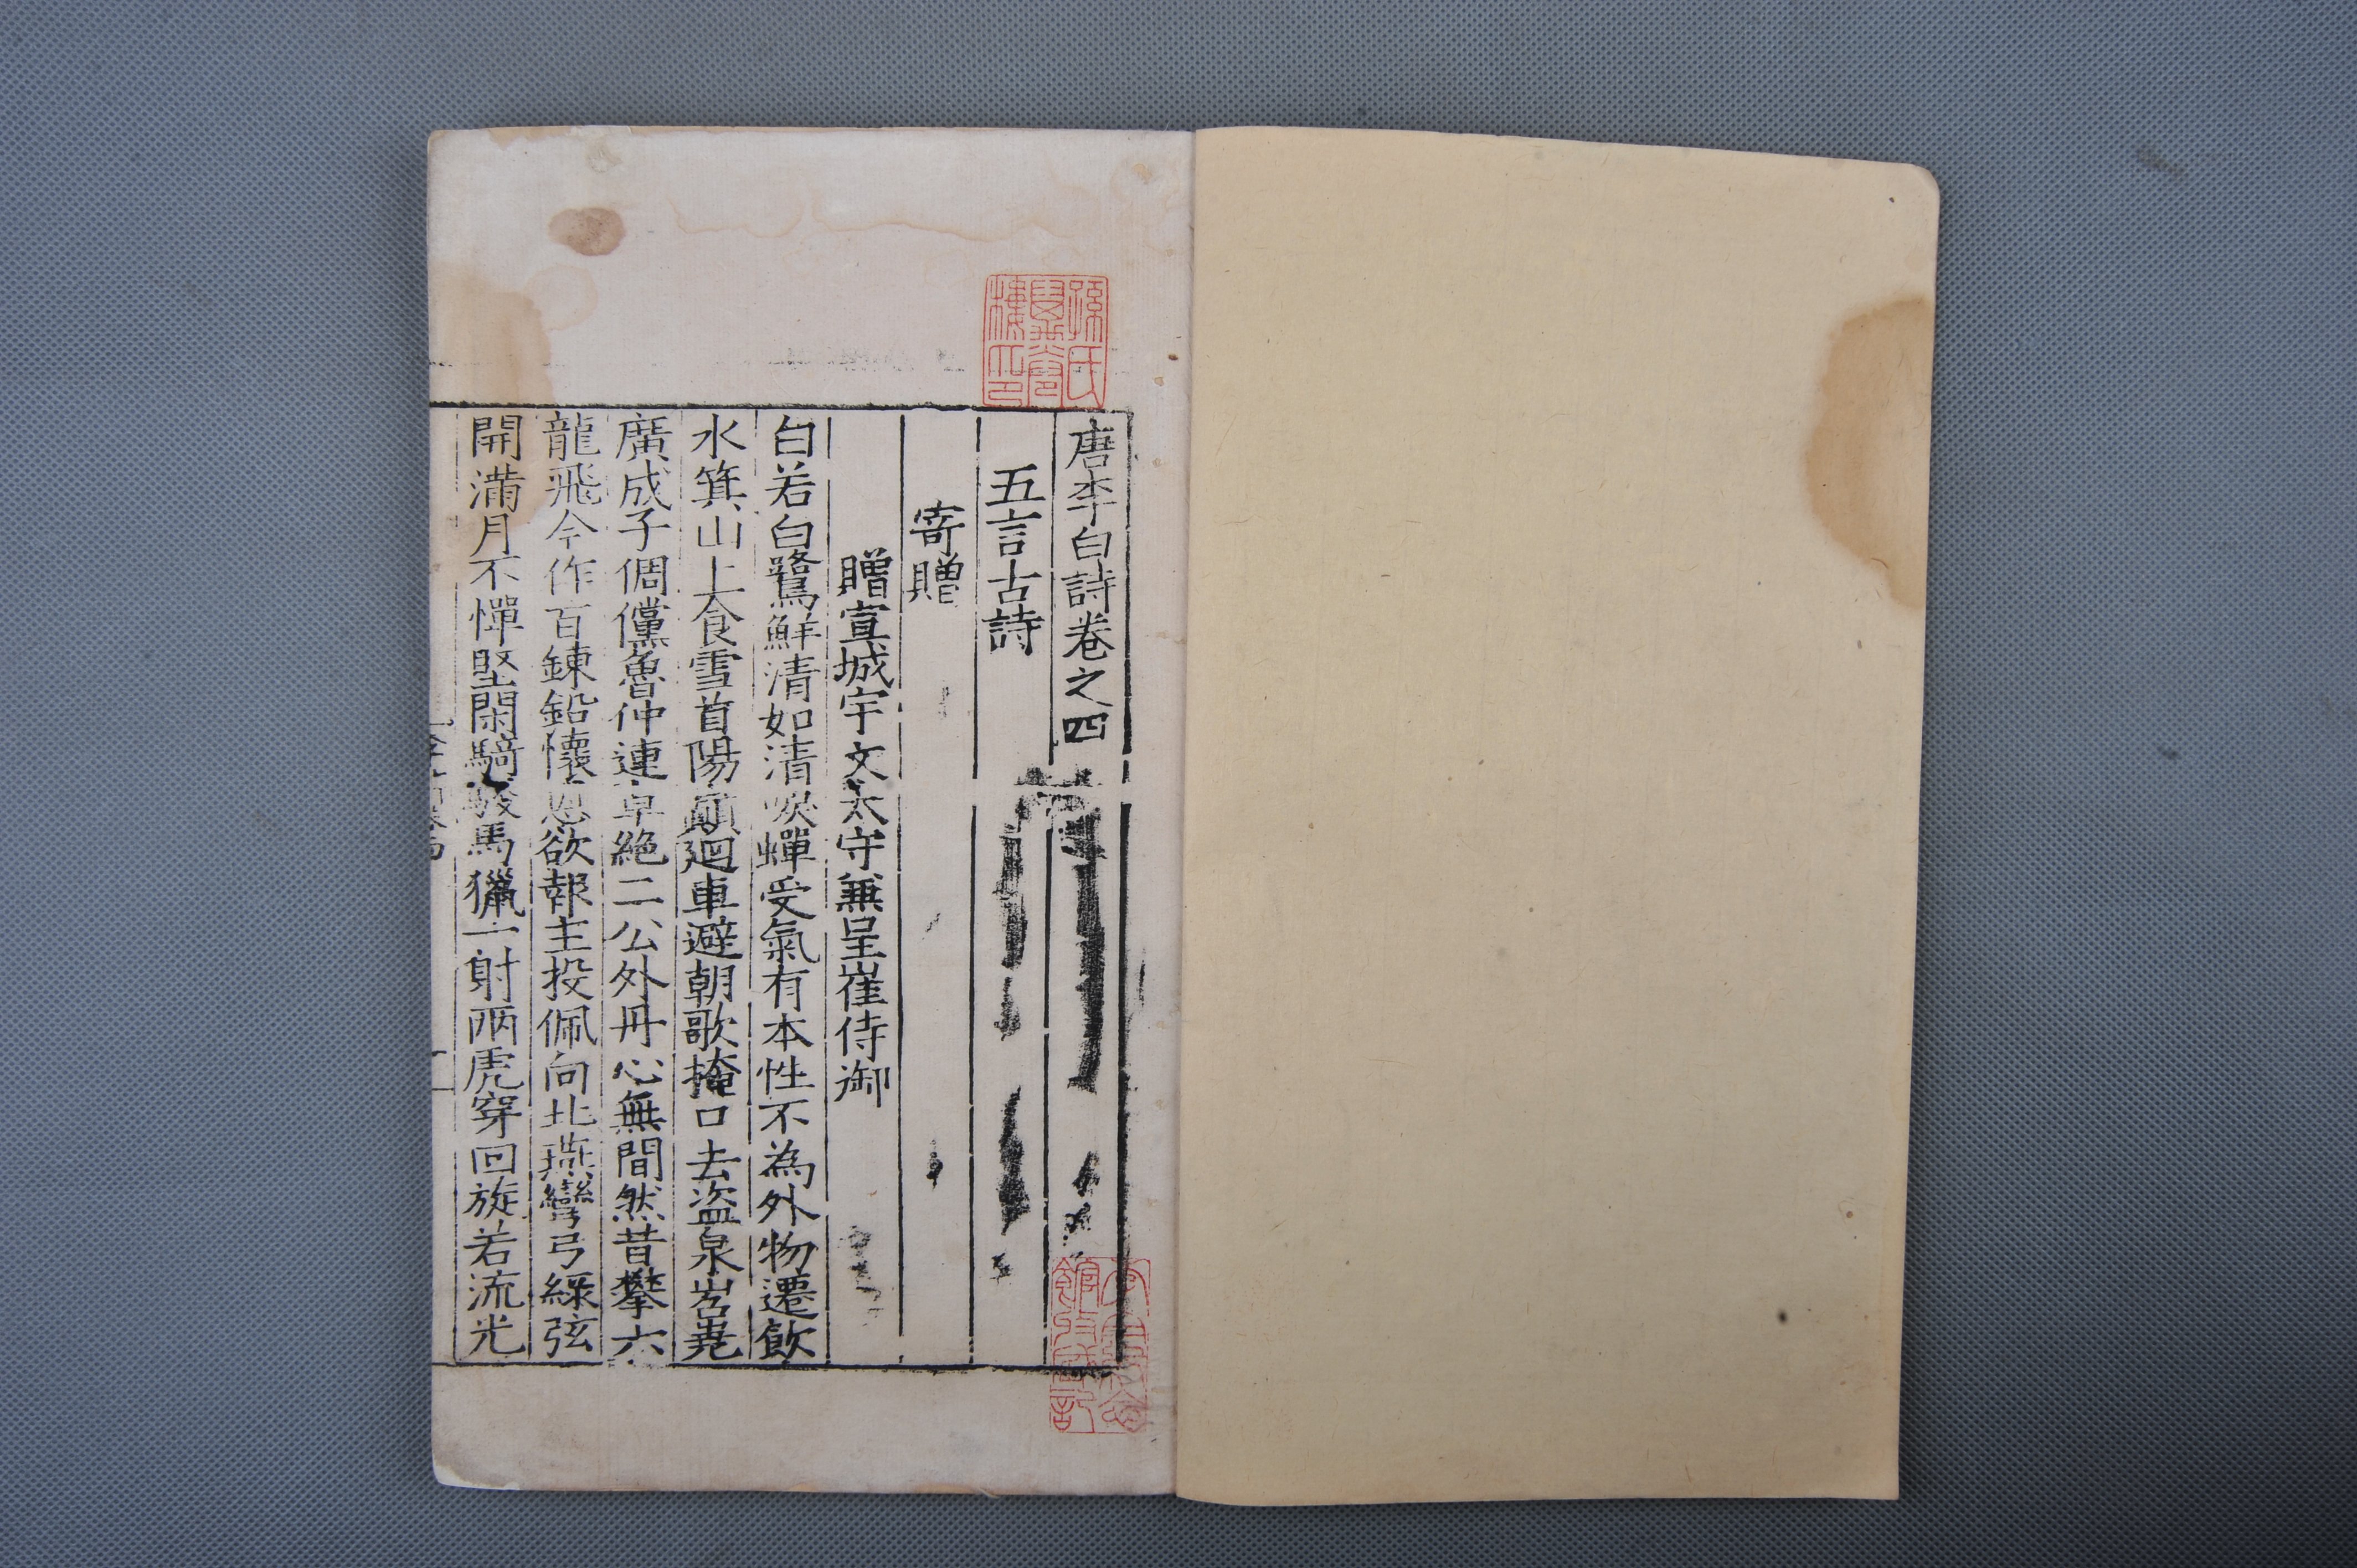 唐李白詩卷之四
五言古詩
寄贈
贈宣城宇文太守兼呈崔侍御
白若白鷺鮮清如清唳蟬受氣有本性不為外物遷飲
水箕山上食雪首陽顚廻車避朝歌掩口去盗泉岧嶤
廣成子倜儻魯仲連卓絶二公外丹心無間然昔攀六
龍飛今作百鍊鉛懷恩欲報主投佩向北燕彎弓綠弦
開滿月不憚堅閑騎駿馬獵一射兩虎穿回旋若流光
孫氏
樓印